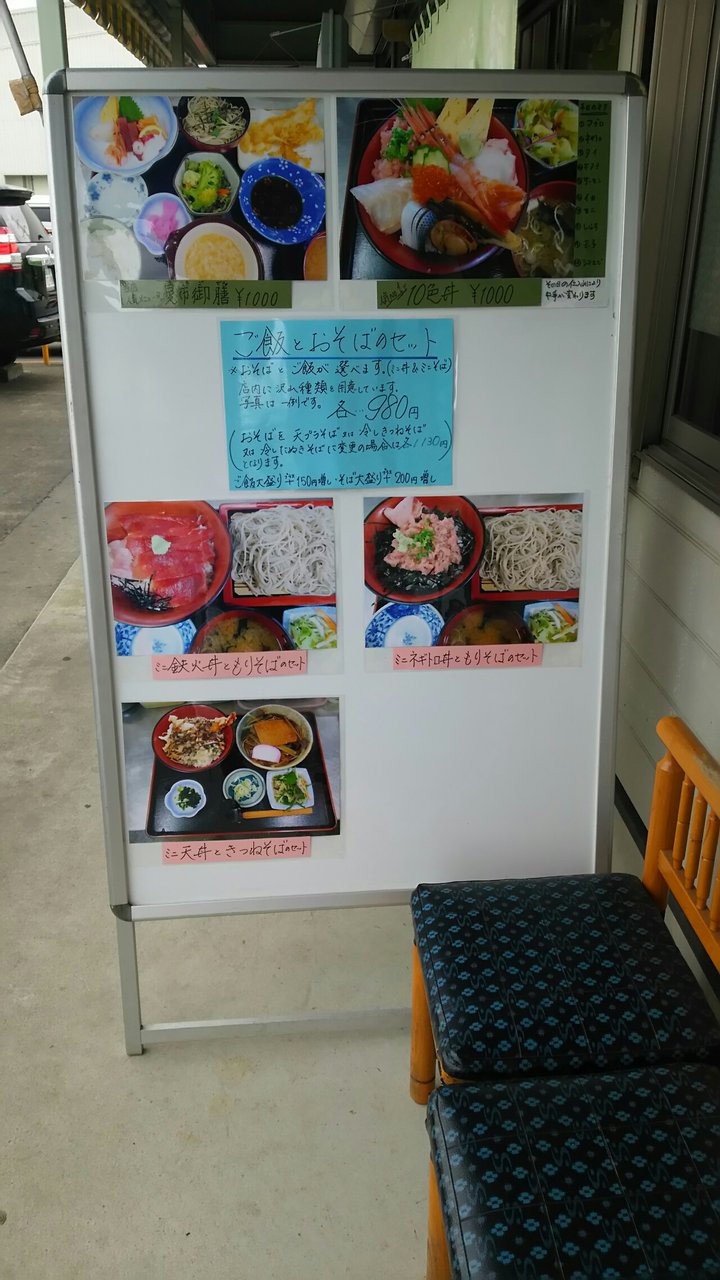 御膳 ¥1000
10色丼 ¥1000
その日の仕入れにより
中身が変わります
ご飯とおそばのセット
※おそばとご飯が選べます。(ミニ丼&ミニそば)
店内に沢山種類を用意しています。
写真は一例です。 各…980円
(おそばを天プラそば又は冷しきつねそば
又は冷したぬきそばに変更の場合は各1130円
となります。
ご飯大盛り150円増し・そば大盛り200円増し
ミニ鉄火丼ともりそばのセット
ミニネギトロ丼ともりそばのセット
ミニ天丼ときつねそばのセット